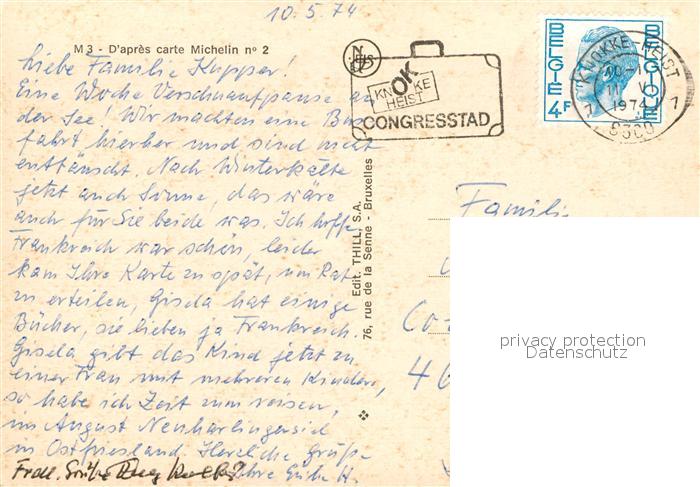 10.5.74
M 3 - D'après carte Michelin nº 2
Liebe Familie Kupper!
Eine Woche Verschnaufpause an
der See! Wir machten eine Bus
fahrt hierher und sind nicht
enttäuscht. Nach Winterkälte
jetzt auch Sonne, das wäre
auch für Sie beide was. Ich hoffe
Frankreich war schön, leider
kam Ihre Karte zu spät, um Rat
zu erteilen, Gisela hat einige
Bücher, sie lieben ja Frankreich.
Gisela gibt das Kind jetzt zu
einer Frau mit mehreren Kindern,
so habe ich Zeit zum reisen,
im August Neuharlingersiel
in Ostfriesland. Herzliche Grüße
Ihre
Frdl. Grüße
Edit. THILL, S.A.
76, rue de la Senne - Bruxelles
OK
KNOKKE
HEIST
CONGRESSTAD
BELGIË
4F
BELGIQUE
KNOKKE-HEIST
1974
Familie
privacy protection
Datenschutz